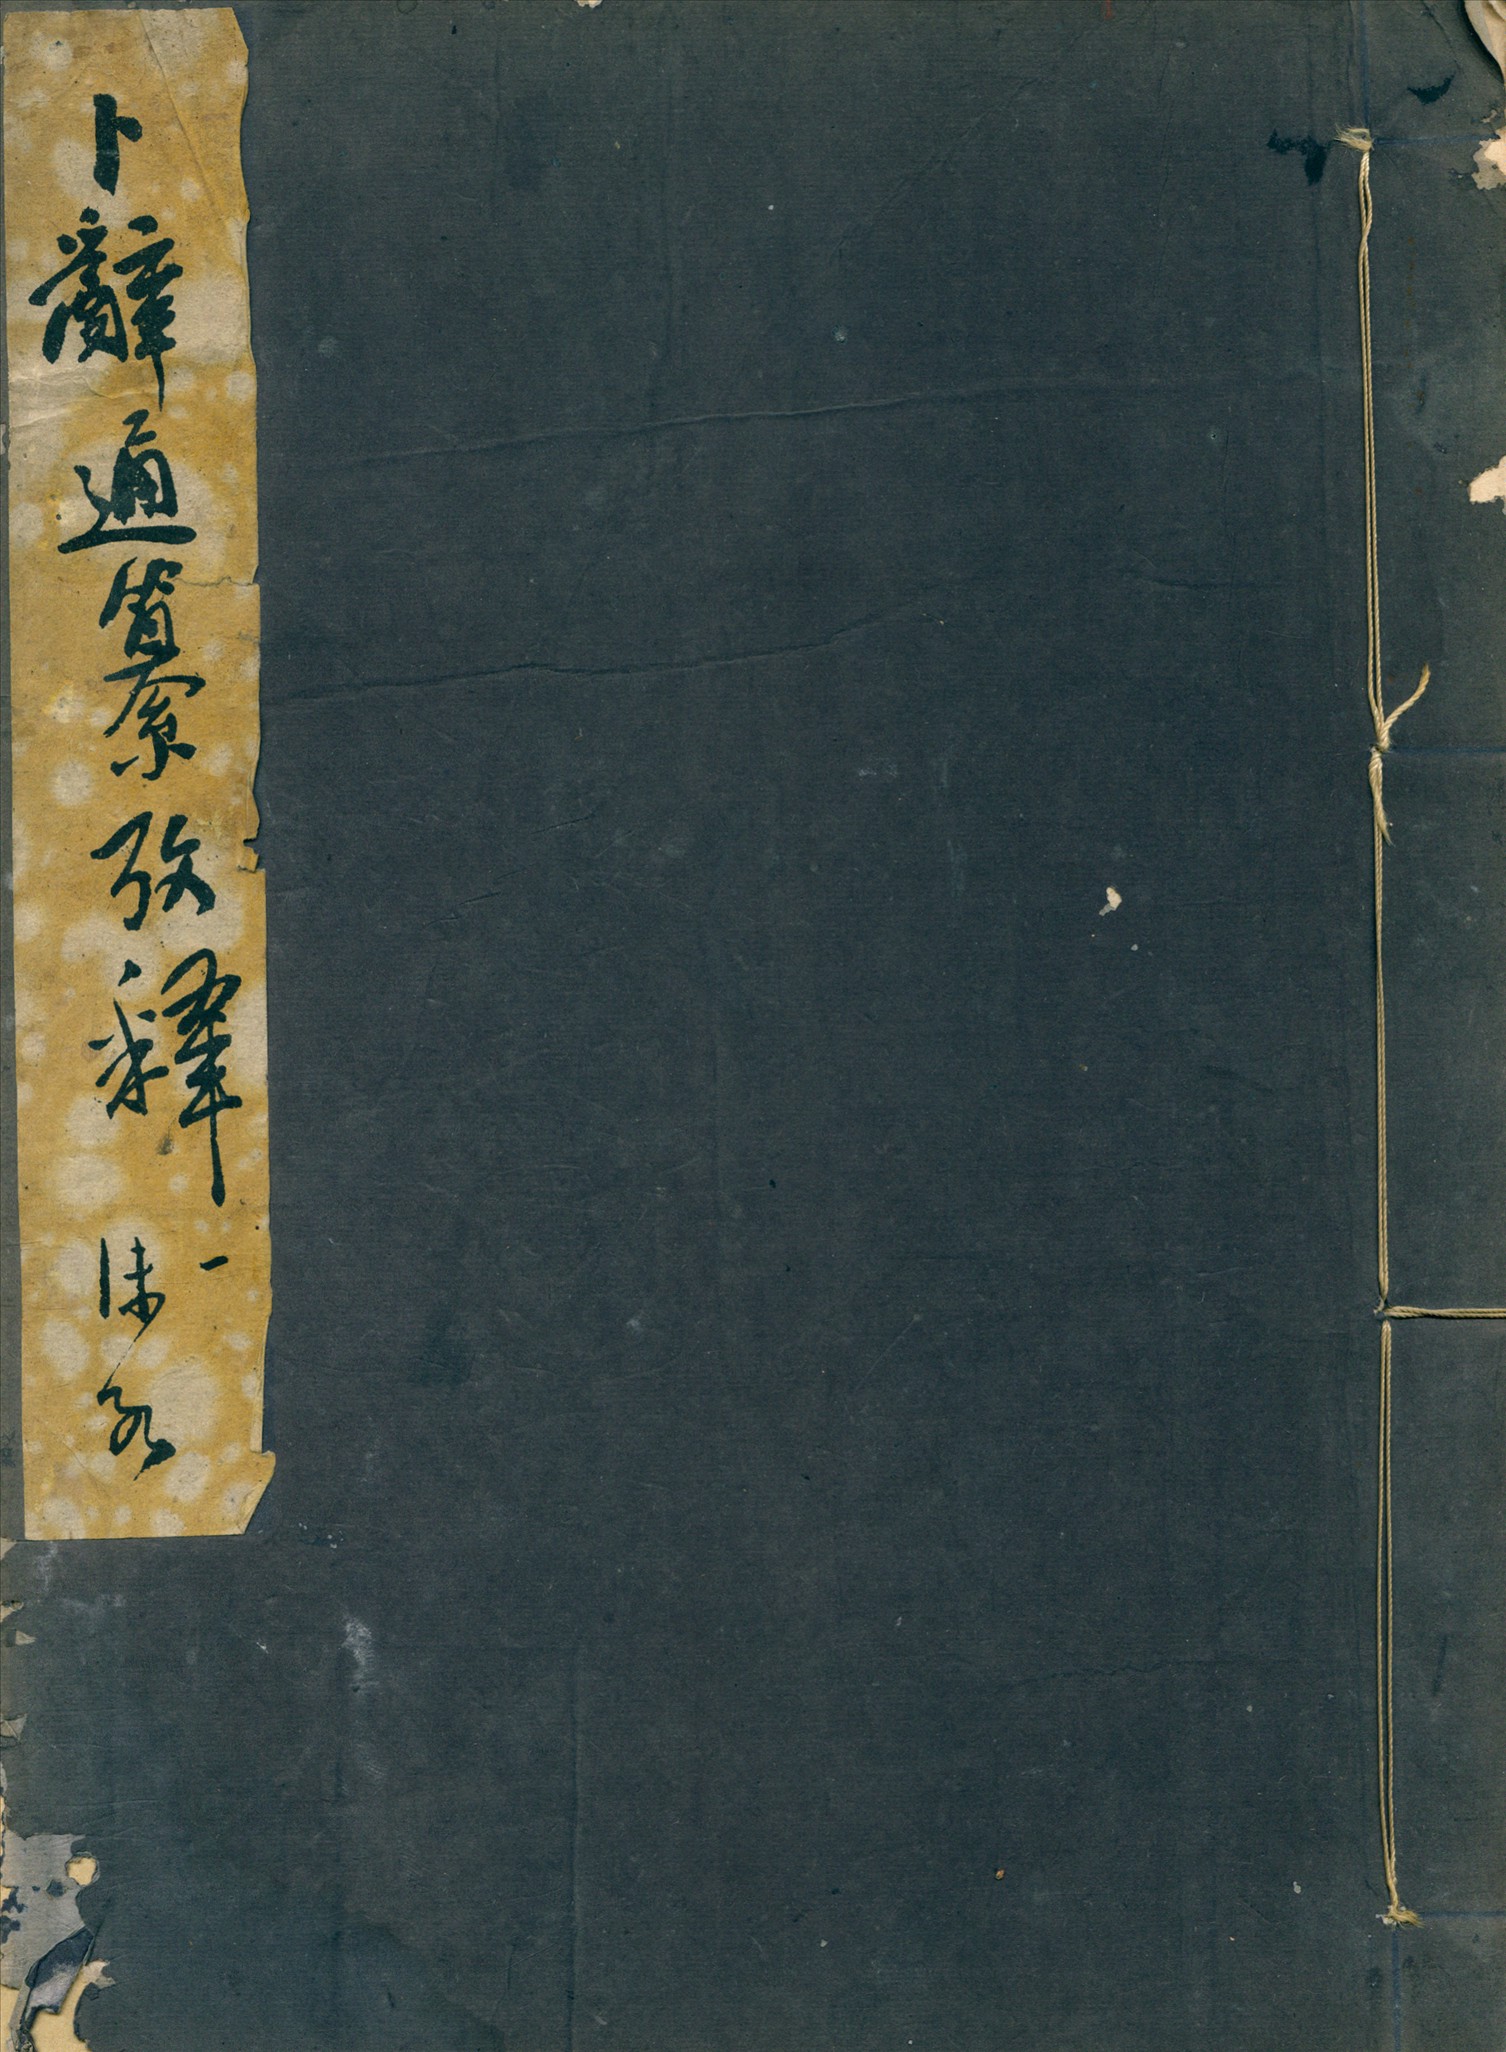 卜辭通纂攷釋一
沫若